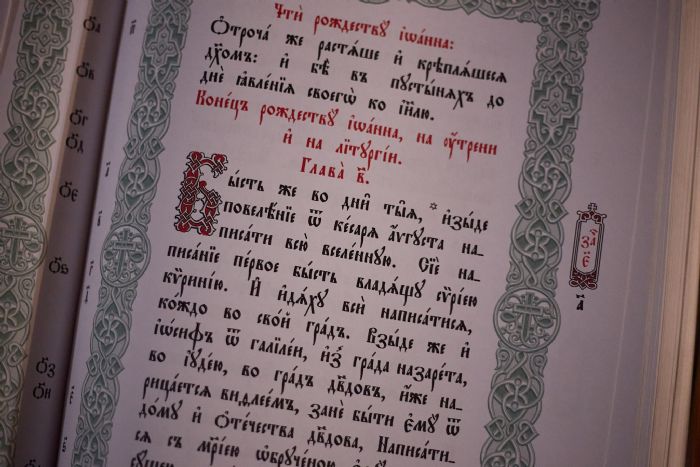 Чтѝ рождествꙋ̀ і҆ѡа́нна:
Ѻ҆троча́ же растѧ́ше и҆ крѣплѧ́шесѧ
дꙋ́хомъ: и҆ бѣ̀ въ пꙋсты́нѧхъ до
днѐ ꙗ҆вле́нїѧ своегѡ̀ ко і҆и҃лю.
Коне́цъ рождествꙋ̀ і҆ѡа́нна, на ᲂу҆́трени
и҆ на лїтꙋргі́и.
Глава̀ в҃.
Бы́сть же во дни̑ ты̑ѧ, * и҆зы́де
повелѣ́нїе ѿ ке́сарѧ а҆́ѵгꙋста на_
писа́ти всю̀ вселе́ннꙋю. Сїѐ на_
писа́нїе пе́рвое бы́сть владѧ́щꙋ сѷрі́ею
кѷри́нїю. И҆ и҆дѧ́хꙋ всѝ написа́тисѧ,
ко́ждо во сво́й гра́дъ. Взы́де же и҆
і҆ѡ́сифъ ѿ галїле́и, и҆з̾ гра́да назаре́та,
во і҆ꙋде́ю, во гра́дъ дв҃довъ, и҆́же на_
рица́етсѧ виѳлее́мъ, занѐ бы́ти є҆мꙋ̀ ѿ
до́мꙋ и҆ ѻ҆те́чества дв҃дова, Написа́ти_
сѧ съ мр҃і́ею ѡ҆брꙋче́ною
з҃а
з҃ є҃
а҃
ѻ҃а
ѻ҃в
ѻ҃г
ѻ҃д
ѻ҃є
ѻ҃ѕ
ѻ҃з
ѻ҃и